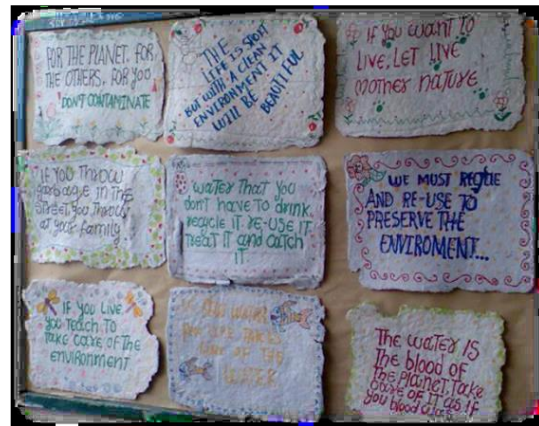 FOR THE PLANET, FOR
THE OTHERS, FOR YOU
DON'T CONTAMINATE
THE
LIFE IS SHORT
BUT WITH A CLEAN
ENVIRONMENT IT
WILL BE
BEAUTIFUL
If you want to
LIVE, LET LIVE
MOTHER NATURE
IF YOU THROW
garbage IN THE
STREET YOU THROW
at your family
water THAT you
don't HAVE to drink,
recicle IT re-use IT
treat IT and catch
IT
WE MUST
AND RE-USE TO
PRESERVE THE
ENVIROMENT...
IF YOU LIVE
you teach to
take care of the
ENVIRONMENT
OF THE
WATER
The water IS
the blood of
the planet. Take
care of it as if
you blood